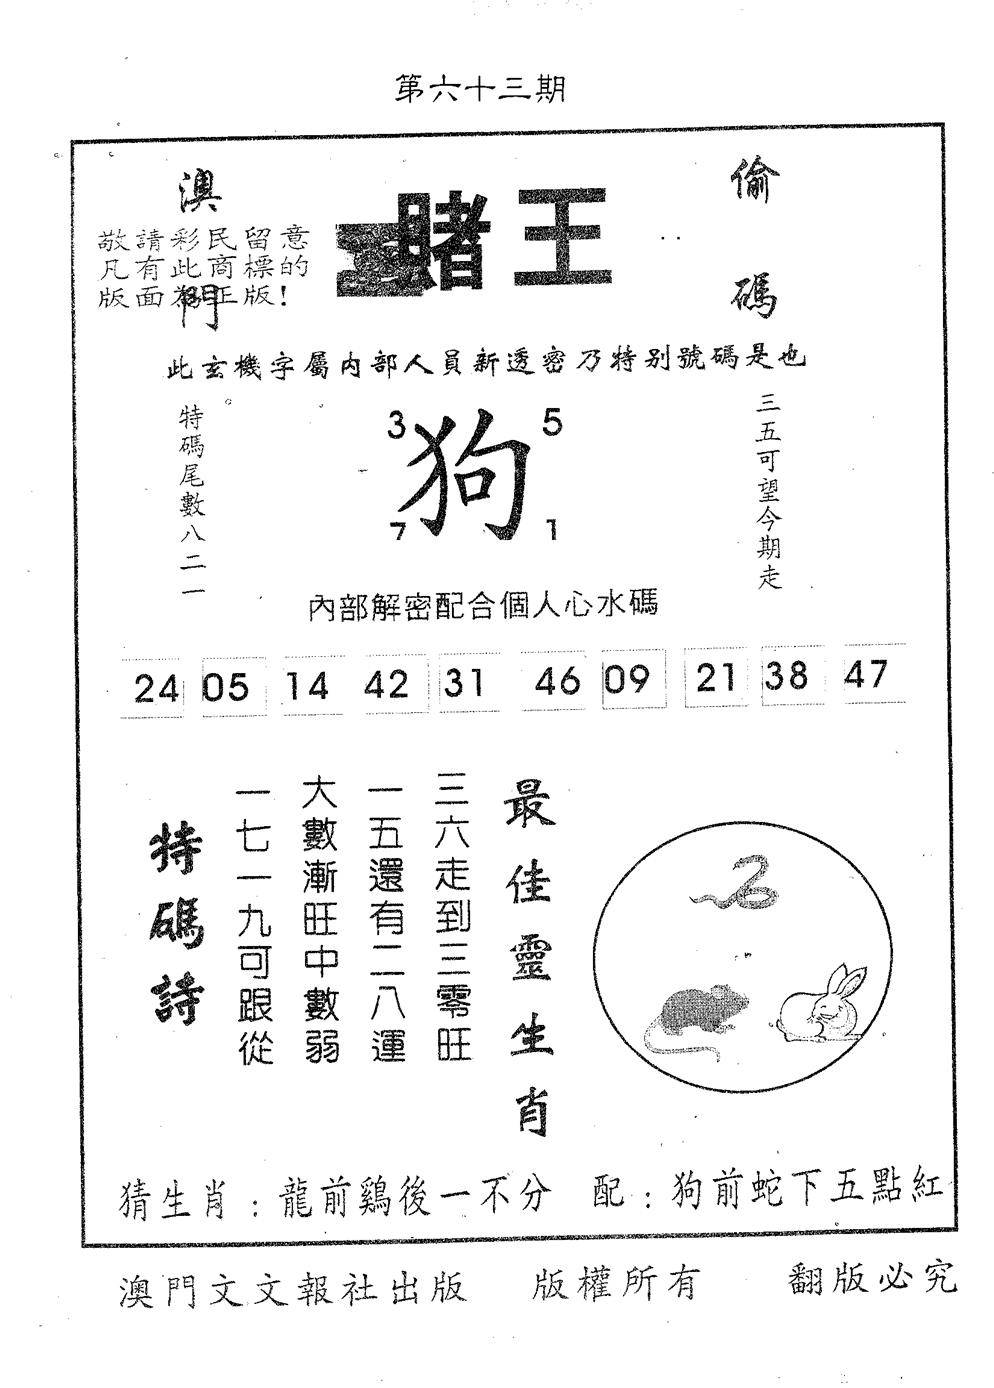 第六十三期
澳門
賭王
偷碼
敬請彩民留意
凡有此商標的
版面為正版!
此玄機字屬內部人員新透密乃特别號碼是也
特碼尾數八二一
3
5
狗
7
1
三五可望今期走
內部解密配合個人心水碼
24 05 14 42 31 46 09 21 38 47
最佳靈生肖
三六走到三零旺
一五還有二八運
大數漸旺中數弱
一七一九可跟從
特碼詩
猜生肖：龍前鷄後一不分 配：狗前蛇下五點紅
澳門文文報社出版 版權所有 翻版必究